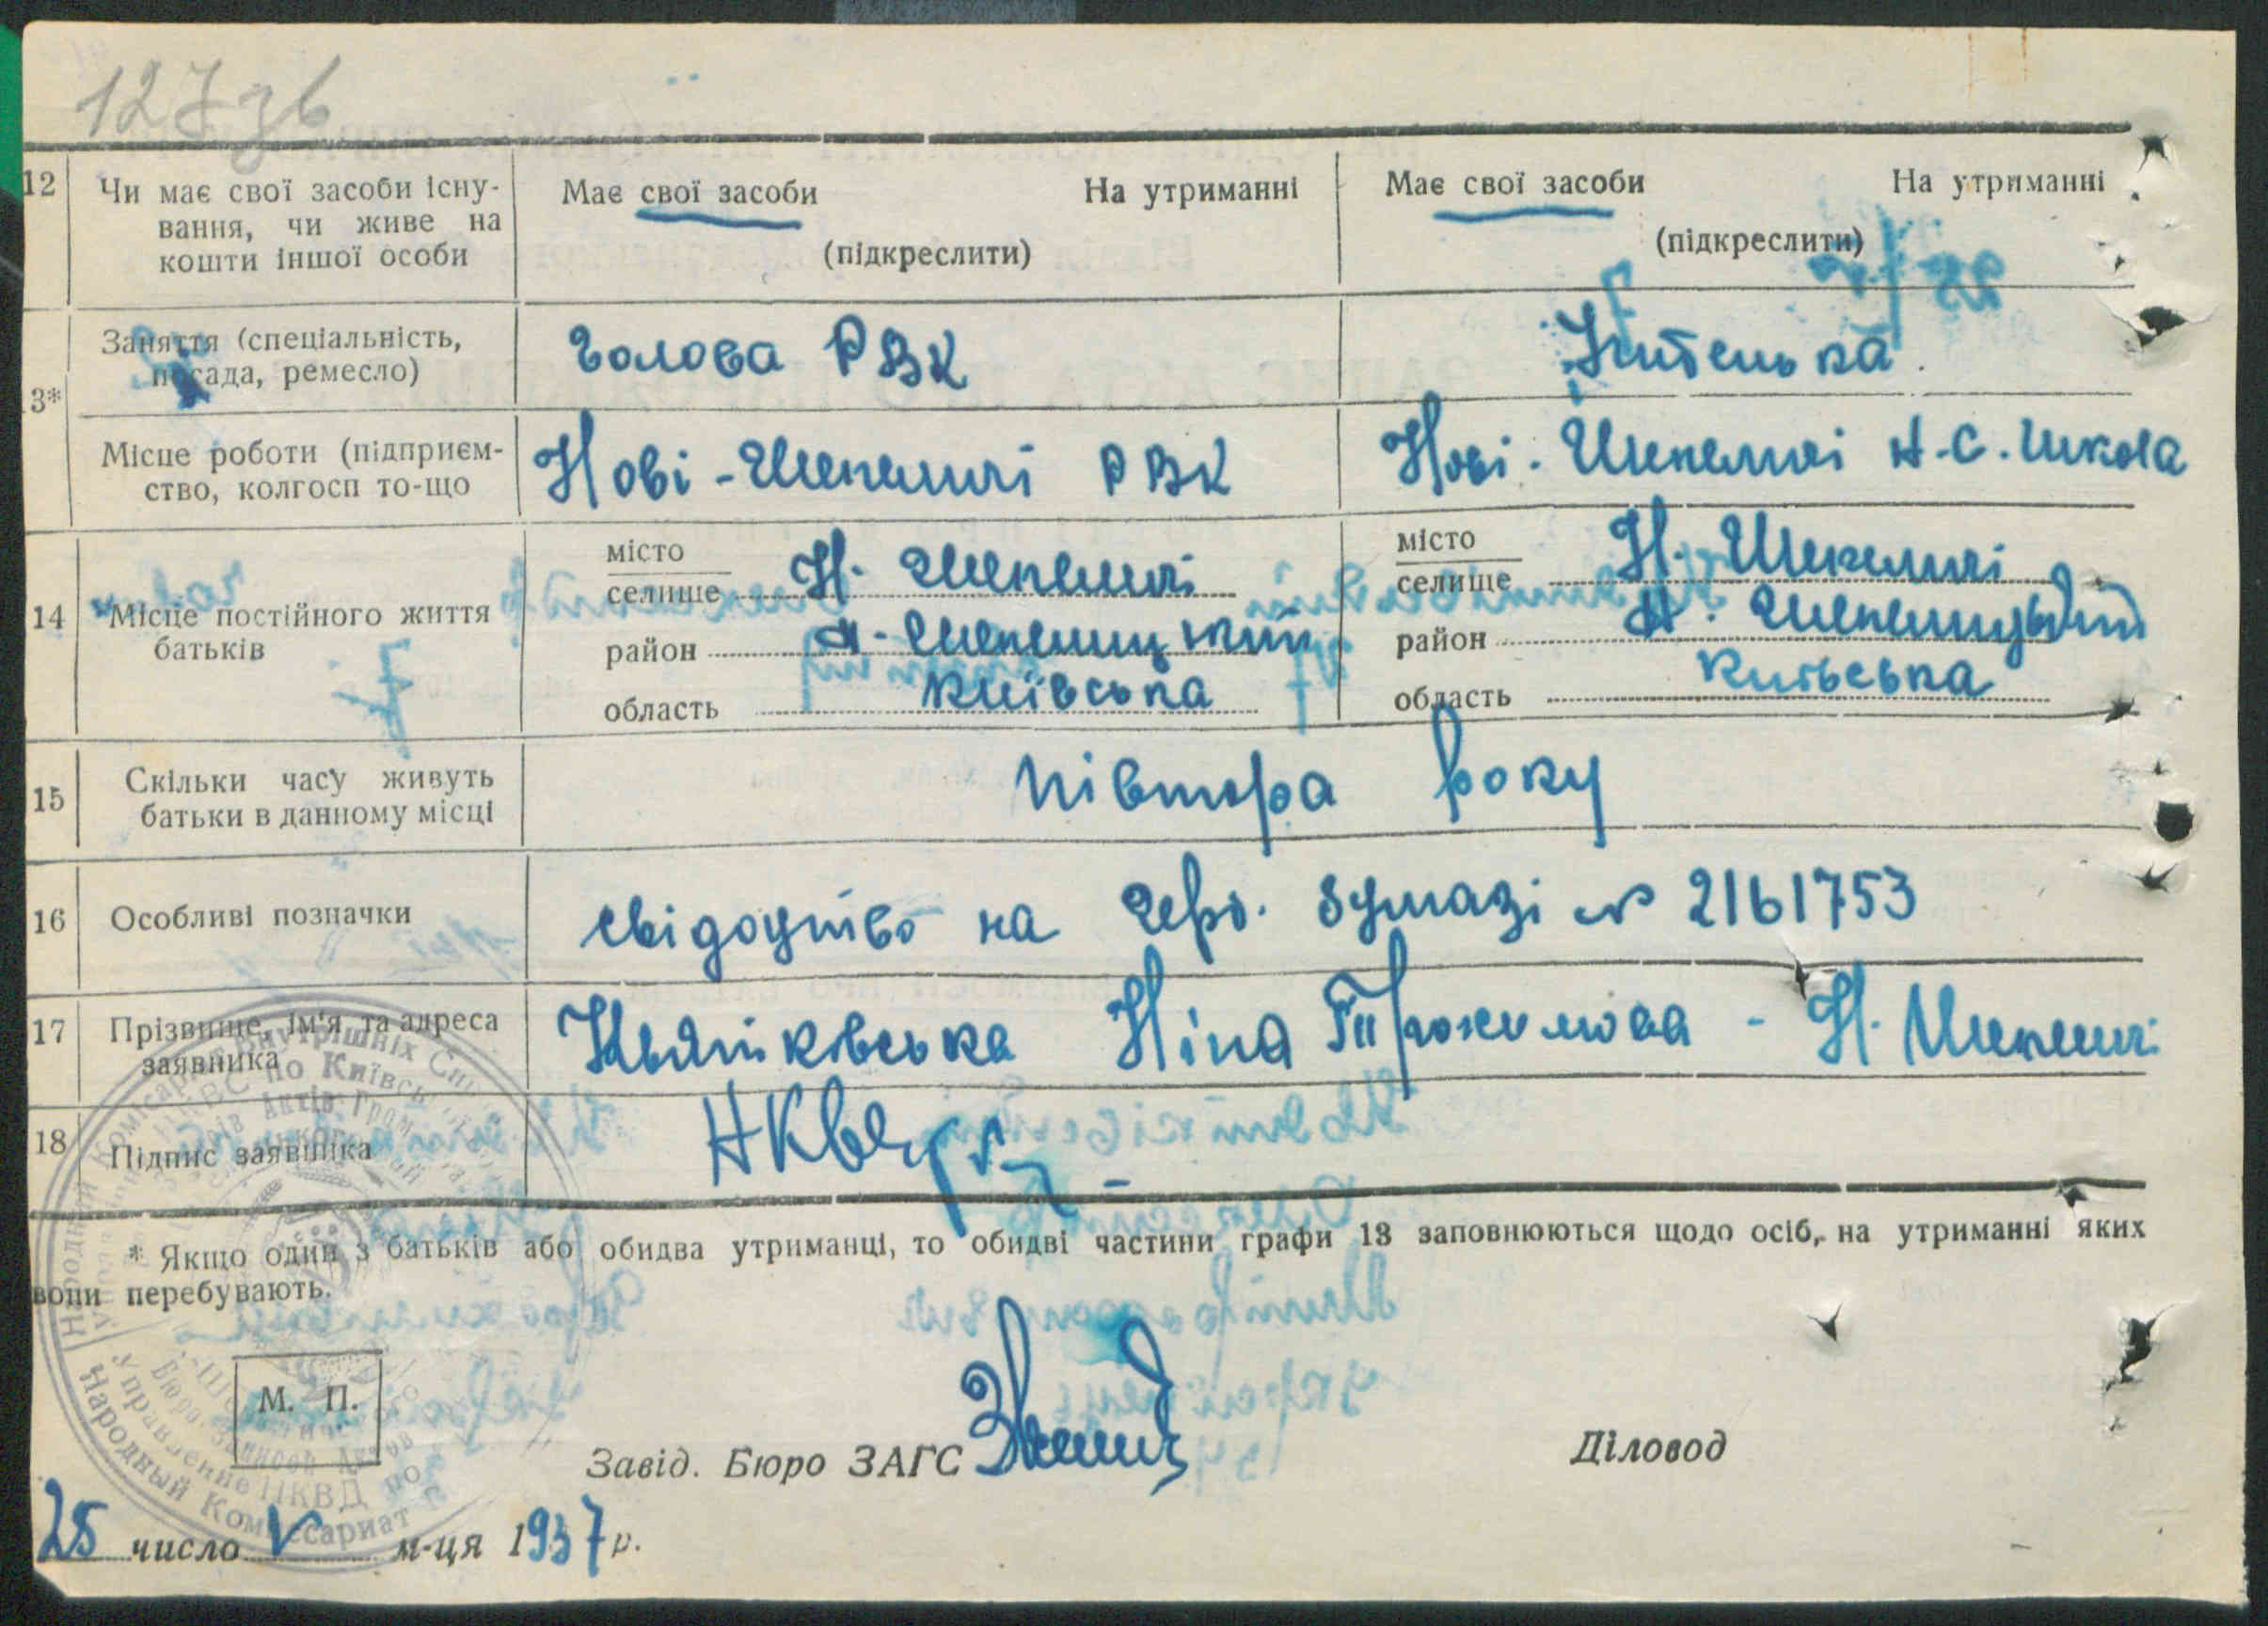 127 зв
12 Чи має свої засоби існу-
вання, чи живе на
кошти іншої особи
Має свої засоби На утриманні
(підкреслити)
Має свої засоби На утриманні
(підкреслити)
3* Заняття (спеціальність,
посада, ремесло)
Голова РВК
Учителька.
Місце роботи (підприєм-
ство, колгосп то-що
Нові-Шепеличі РВК
Нові-Шепеличі Н.С. Школа
14 Місце постійного життя
батьків
місто
селище Н. Шепеличі
район Н-Шепелицький
область Київська
місто
селище Н. Шепеличі
район Н. Шепелицький
область Київська
15 Скільки часу живуть
батьки в данному місці
Півтора року
16 Особливі позначки
свідоцтво на герб. бумазі № 2161753
17 Прізвище, ім'я та адреса
заявника
Ніна - Н. Шепеличі
18 Підпис заявника
* Якщо один з батьків або обидва утриманці, то обидві частини графи 13 заповнюються щодо осіб, на утриманні яких
вони перебувають.
М. П.
Завід. Бюро ЗАГС
Діловод
25 число V м-ця 1937 р.
Народный Комиссариат
Управление НКВД по